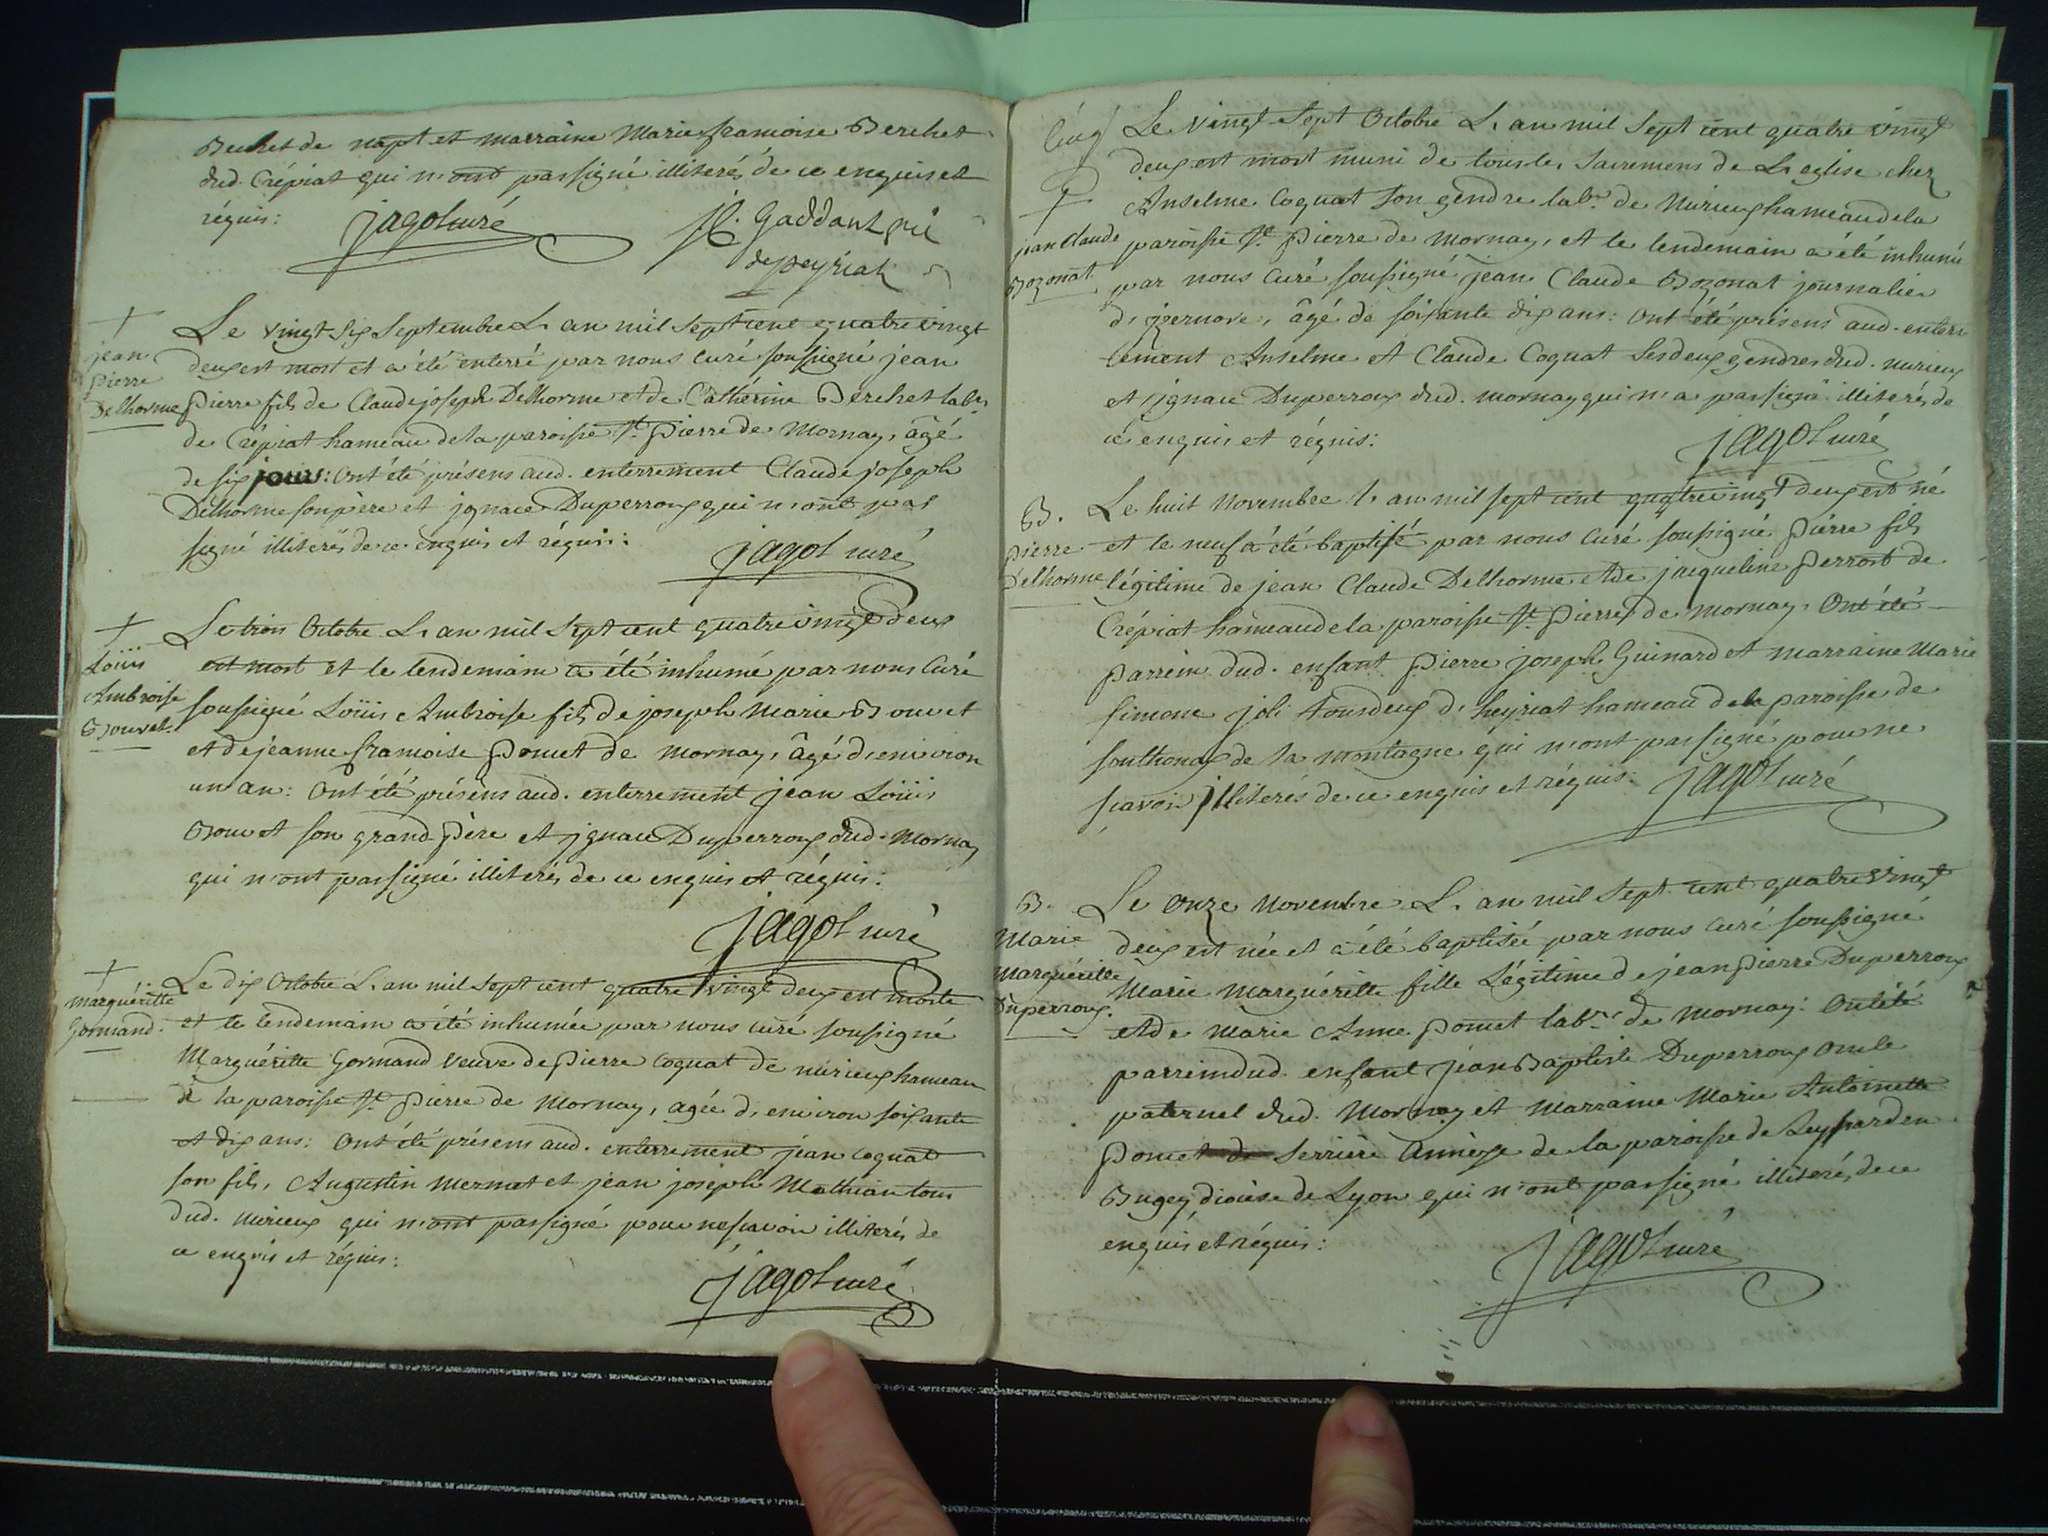 Berchet de napt et marraine Marie françoise Berchet
dud. Crépiat qui n'ont pas signé illiterés de ce enquis et
réquis: jagot curé
de peyriat
†
jean
pierre
Delhorme
Le vingt six Septembre L'an mil sept cent quatre vingt
deux est mort et a été enterré par nous curé soussigné jean
pierre fils de Claude joseph Delhorme et de Catherine Berchet labr.
de Crépiat hameau de la paroisse St. pierre de Mornay, âgé
de six jours: Ont été présens aud. enterrement Claude joseph
Delhorme son père et jgnace Duperroux qui n'ont pas
signé illiterés de ce enquis et réquis:
jagot curé
†
Loüis
Ambroise
Bouvet
Le trois Octobre L'an mil sept cent quatre vingt deux
est mort et le lendemain a été inhumé par nous Curé
soussigné Loüis Ambroise fils de joseph Marie Bouvet
et de jeanne françoise poncet de Mornay, âgé d'environ
un an: Ont été présens aud. enterrement jean Loüis
Bouvet son grand père et jgnace Duperroux dud. Mornay
qui n'ont pas signé illiterés de ce enquis et réquis:
jagot curé
†
Marguéritte
Gormand
Le dix Octobre L'an mil sept cent quatre vingt deux est morte
et le lendemain a été inhumée par nous curé soussigné
Marguéritte Gormand veuve de pierre Coquat de nurieux hameau
de la paroisse St. pierre de Mornay, agée d'environ soixante
et dix ans: Ont été présens aud. enterrement jean Coquat
son fils, Augustin Mermet et jean joseph Mathian tous
dud. nurieux qui n'ont pas signé pour ne scavoir illiterés de
ce enquis et réquis:
jagot curé
†
jean Claude
Bozonat
Le vingt sept Octobre L'an mil sept cent quatre vingt
deux est mort muni de tous les sacremens de L'eglise chez
Anselme Coquat son gendre labr. de Nurieux hameau de la
paroisse St. pierre de Mornay, et le lendemain a été inhumé
par nous Curé soussigné jean Claude Bozonat journalier
d'jzernore, âgé de soixante dix ans: Ont été présens aud. enterr
cement Anselme et Claude Coquat ses deux gendres dud. nurieux
et jgnace Duperroux dud. Mornay qui n'a pas signé illiterés de
ce enquis et réquis:
jagot curé
B.
pierre
Delhorme
Le huit Novembre L'an mil sept cent quatre vingt deux est né
et le neuf a été baptisé par nous Curé soussigné pierre fils
légitime de jean Claude Delhorme et de jacqueline perrost de
Crépiat hameau de la paroisse St. pierre de Mornay. Ont été
parrein dud. enfant pierre joseph Guinard et marraine Marie
simone joli tous deux d'heyriat hameau de la paroisse de
sonthonax de la montagne qui n'ont pas signé pour ne
scavoir illiterés de ce enquis et réquis: jagot curé
B.
Marie
Marguéritte
Duperroux.
Le Onze Novembre L'an mil sept cent quatre vingt
deux est née et a été baptisée par nous Curé soussigné
Marie Marguéritte fille Légitime de jean pierre Duperroux
et de Marie Anne poncet labr. de Mornay: Ont été
parrein dud. enfant jean Baptiste Duperroux oncle
paternel dud. Mornay et marraine Marie Antoinette
poncet de serriere Annèxe de la paroisse de Leyssard en
Bugey diocèse de Lyon qui n'ont pas signé illiterés de ce
enquis et réquis:
jagot curé